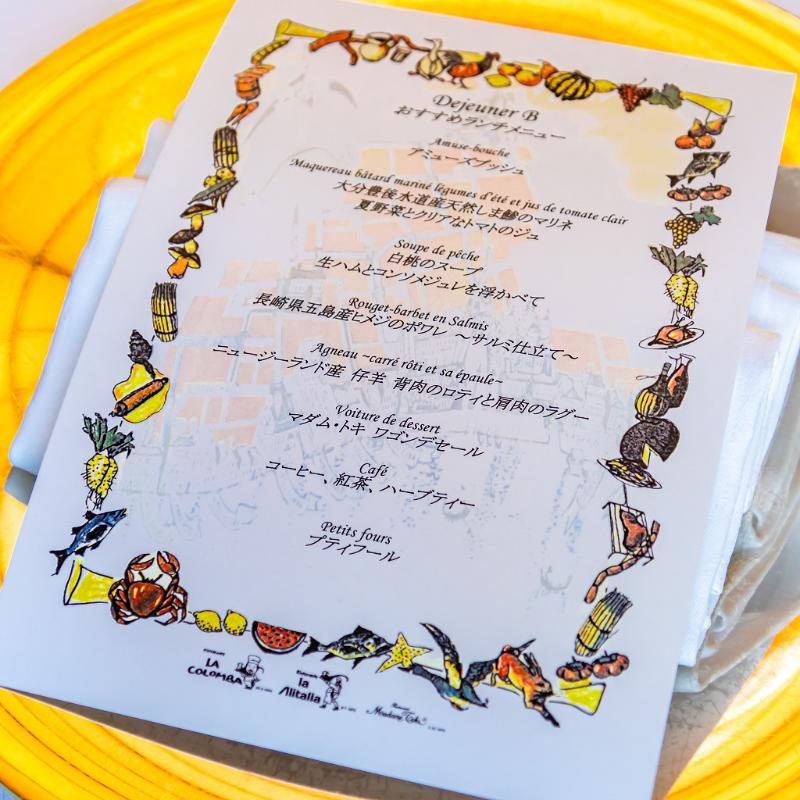 Dejeuner B
おすすめランチメニュー
Amuse-bouche
アミューズブッシュ
Maquereau bâtard mariné légumes d'été et jus de tomate clair
大分豊後水道産天然しま鯵のマリネ
夏野菜とクリアなトマトのジュ
Soupe de pêche
白桃のスープ
生ハムとコンソメジュレを浮かべて
Rouget-barbet en Salmis
長崎県五島産ヒメジのポワレ ～サルミ仕立て～
Agneau ~carré rôti et sa épaule~
ニュージーランド産 仔羊 背肉のロティと肩肉のラグー
Voiture de dessert
マダム・トキ ワゴンデセール
Café
コーヒー、紅茶、ハーブティー
Petits fours
プティフール
LA COLOMBA
la Alitalia
Madame Toki